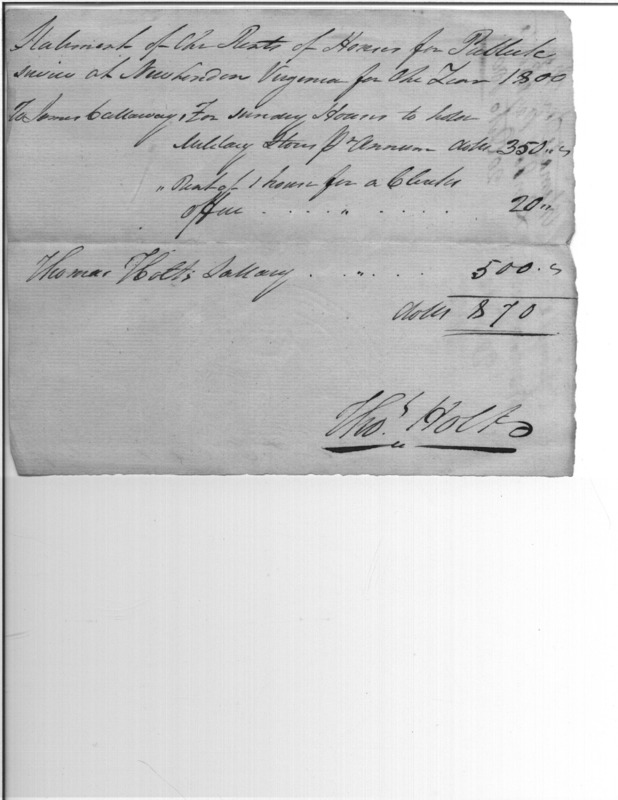 Statement of the Rents of Houses for Publick
service at New London Virginia for the Year 1800
To James Callaway, For sundry Houses to hold
Military Stores pr Annum dolls 350
" Rent of 1 house for a Clerks
office . . . . " . . . . 20
Thomas Holts Sallary . . " . . 500
dolls 870
Thos Holt